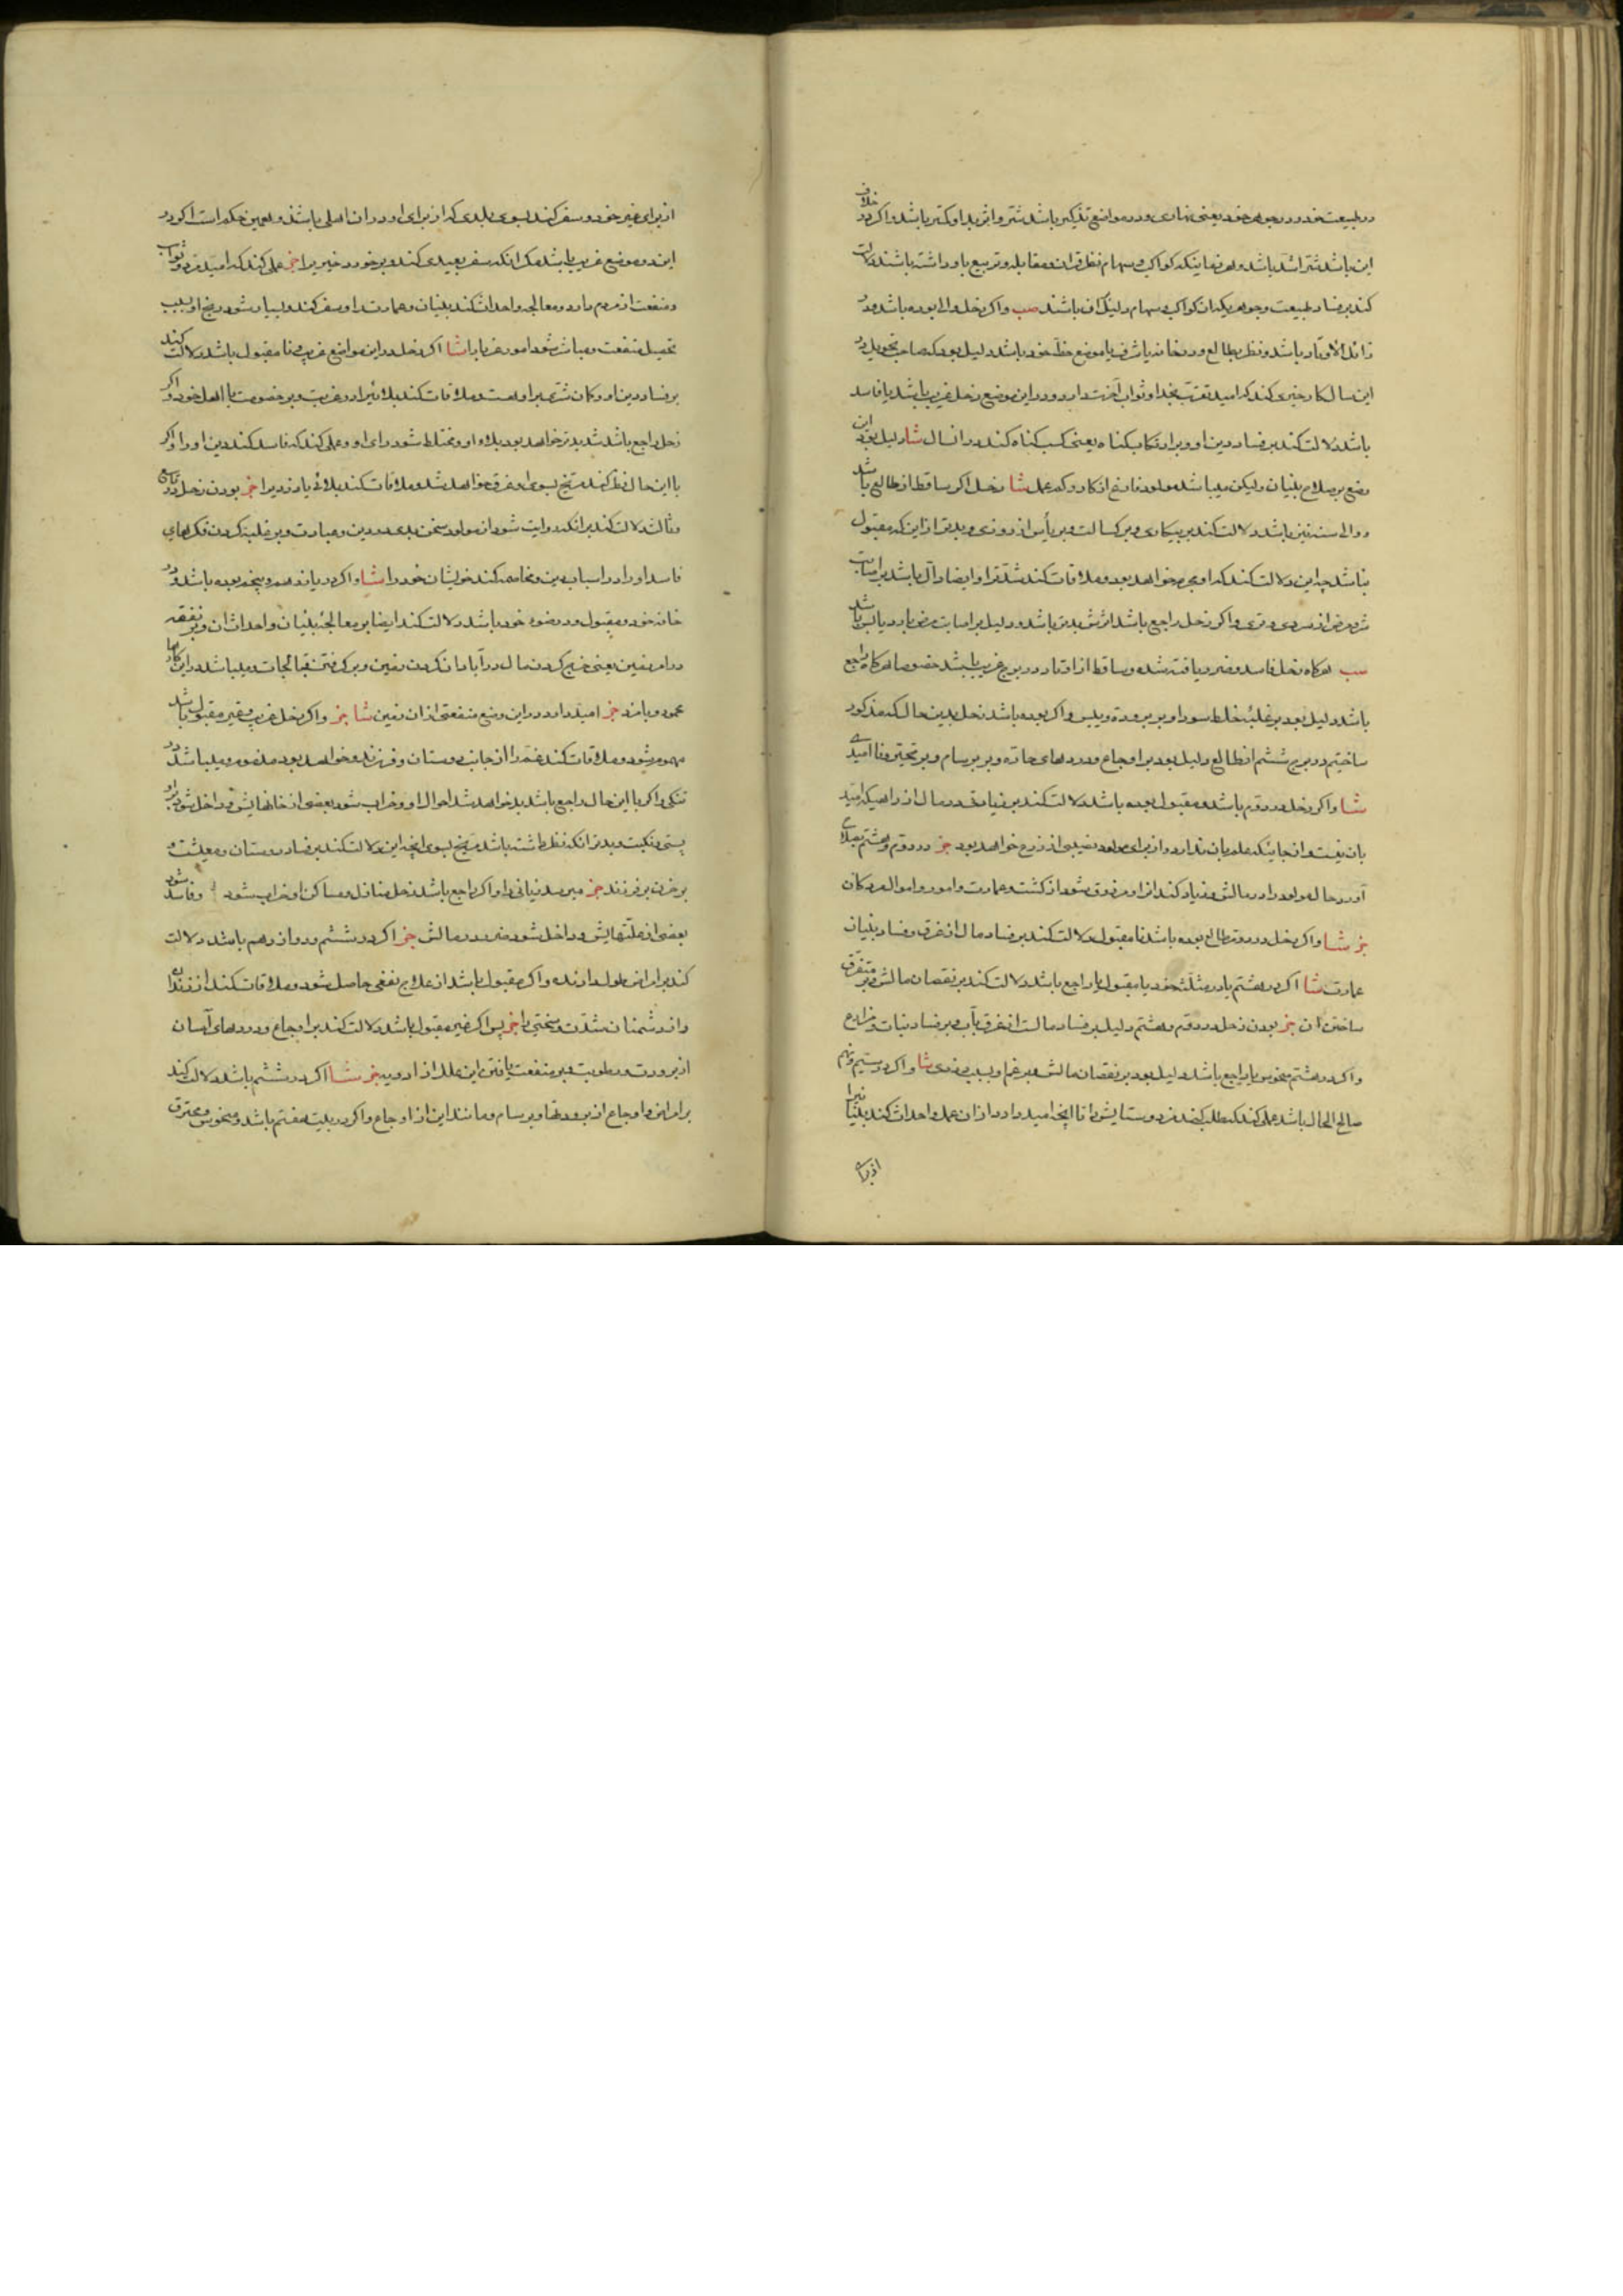 در طبیعت خود و در جوهر خود یعنی نهاری و در مواضع تذکیر باشد شر و اثر بد او کمتر باشد و اگر در خلاف
این باشد شر اشد باشد و هر زمانیکه کواکب و سهام نظر قران و مقابله و تربیع باو داشته باشند دلالت
کند بر فساد طبیعت و جوهر یکه آن کواکب و سهام دلیل آن باشند صب و اگر زحل والی بوده باشد و در
زائل الاوتاد باشد و نظر بطالع و در خانه یا شرف یا موضع حظ خود باشد دلیل بود که صاحب تحویل در
این سال کار خیری کند که امید تقرب بخدا و ثواب آخرت دارد و در این موضع زحل غریب باشد یا فاسد
باشد دلالت کند بر فساد دین او و بر ارتکاب گناه یعنی کسب گناه کند در آن سال شا دلیل بود این
وضع بر صلاح بنیان و لیکن میباشد مولود فارغ از کار و کم عمل شا زحل اگر ساقط از طالع باشد
و والی سنه نیز باشد دلالت کند بر بیکاری و بر کسالت و بر یأس از روزی و بدتر از این که مقبول
نباشد چه این دلالت کند که او مجرم خواهد بود و ملاقات کند شدت را و ایضا دال باشد بر اصابت
شر و مرض از سردی و تری و اگر زحل راجع باشد اثرش بدتر باشد و دلیل بر اصابت مرض بارد یابس باشد
سب هرگاه زحل فاسد و ضرر یافته شده و ساقط از اوتاد در بروج غریب باشد خصوصا هرگاه راجع
باشد دلیل بود بر غلبهٔ خلط سودا و بر برودة و یبس و اگر بوده باشد زحل بدین حال که مذکور
ساختیم در برج ششم از طالع دلیل بود بر اوجاع و دردهای حاده و بر برسام و بر تحیر و ناامیدی
شا و اگر زحل در دوم باشد و مقبول بوده باشد دلالت کند بر زیادتی در مال از راهیکه امید
بآن نیست و از جائیکه علم بآن ندارد و از برای مولود نصیبی از زرع خواهد بود خز در دوم و هشتم بصلاح
آورد حال مولود را در مالش و زیاد کند آنرا و مرزوق شود از کشت و عمارت و امور و اموال مردگان
خز شا و اگر زحل در دوم طالع بوده باشد نامقبول دلالت کند بر فساد مال از غرق و فساد بنیان
عمارت شا اگر در هشتم یا در مثلثهٔ خود یا مقبول یا راجع باشد دلالت کند بر نقصان مالش و بر متفرق
ساختن آن خز بودن زحل در دوم و هشتم دلیل بر فساد مال است از غرق بآب و بر فساد نبات و مزارع
و اگر در هشتم منحوس یا راجع باشد دلیل بود بر نقصان مالش و بر غم او بسبب روزی شا و اگر در سیم و نهم
صالح الحال باشد عملی کند که طلب کند مزد و ستایش را تا آنچه امید دارد از آن عمل و احداث کند بنیانرا
از برای
از برای غیر خود و سفر کند بسوی بلدی که از برای او در آن اصلی باشد و همین حکم است اگر در
این دو موضع غریب باشد مگر آنکه سفر بعیدی کند و بر خورد خیر را خز عملی کند که امید مزد و ثواب
و منفعت از مردم دارد و معالجه و احداث کند بنیان و عمارت را و سفر کند و بسیار شود رنج او بسبب
تحصیل منفعت و مباشر شود امور غربا را شا اگر زحل در این مواضع غریب و نامقبول باشد دلالت کند
بر فساد دین او و گمان شر بر او هست و ملاقات کند بلائی را در غربت و بر خصومت با اهل خود و اگر
زحل راجع باشد شدیدتر خواهد بود بلاء او و مختلط شود رای او و عملی کند که فاسد کند دین او را و اگر
با این حال نظر کند مریخ بسوی او غرق خواهد شد و ملاقات کند بلائی یا دزد را خز بودن زحل در تاسع
و ثالث دلالت کند بر آنکه روایت شود از مولود سخن بدی در دین و عبادت و بر غلبه کردن فکرهای
فاسد او را در اسباب دین و مخاصمه کند خویشان خود را شا و اگر در یازدهم و پنجم بوده باشد و در
خانه خود و مقبول و در ضوء خود باشد دلالت کند ایضا بر معالجهٔ بنیان و احداث آن و بر نفقه
در امر زمین یعنی خرج کردن مال در آبادان کردن زمین و بر گرفتن قبالجات و میباشد در این کارها
عمود و بامزد خز امید دارد در این وضع منفعتی از آن زمین شا خز و اگر زحل غریب و غیر مقبول باشد
مهموم شود و ملاقات کند غم را از جانب دوستان و فرزند و خواهد بود مغموم و میباشد در
تنگی و اگر با این حال راجع باشد بد خواهد شد احوال او و خراب شود بعضی از خانهایش و داخل شود بر او
پستی و نکبت و بدتر آنکه نظر داشته باشد مریخ بسوی او چه این دلالت کند بر فساد دوستان و معیشت و
بر حزن بر فرزند خز میرسد زیانی را و اگر راجع باشد زحل منازل و مساکن او خراب شود و فاسد شود
بعضی از غلتهایش و داخل شود ضرر در مالش خز اگر در ششم و دوازدهم باشد دلالت
کند بر امراض طول دارنده و اگر مقبول باشد از علاج نفعی حاصل شود و ملاقات کند از زندان
و از دشمنان شدت و سختی را خز پس اگر غیر مقبول باشد دلالت کند بر اوجاع و دردهای آسان
از برودت و رطوبت و بر منفعت یافتن این علل از ادویه خز شا اگر در ششم باشد دلالت کند
بر امراض و اوجاع از برودتها و برسام و مانند این از اوجاع و اگر در بیت هفتم باشد و منحوس و محترق